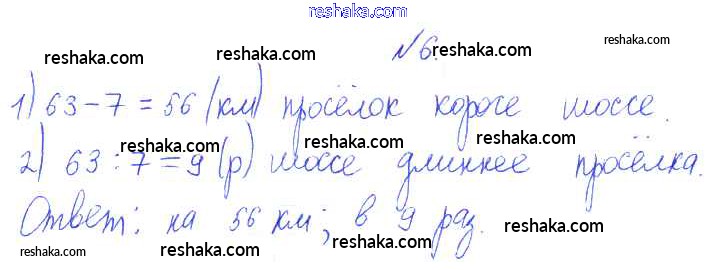 reshaka.com
№ 6.
reshaka.com reshaka.com reshaka.com
1) 63-7=56 (км) просёлок короче шоссе.
reshaka.com reshaka.com reshaka.com
2) 63:7=9 (р) шоссе длиннее просёлка.
reshaka.com reshaka.com reshaka.com
Ответ: на 56 км; в 9 раз.
reshaka.com reshaka.com reshaka.com reshaka.com